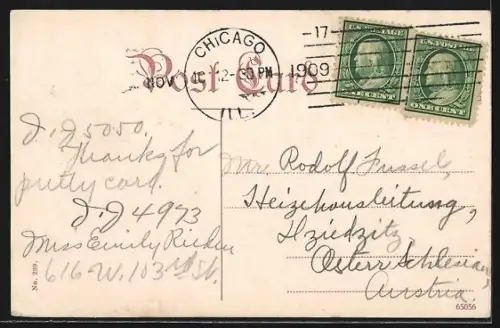 Post Card
CHICAGO
ILL.
NOV
12-30 PM
1909
-17-
U.S. POSTAGE
ONE CENT
U.S. POSTAGE
ONE CENT
I. J 5050.
Thanks for
pretty card.
I. J 4973
Miss Emily
616 W. 103rd St.
No. 289.
Mr Rodolf Fussel,
Heizhausleitung,
Dziedzitz,
Österr Schlesien,
Austria.
65056